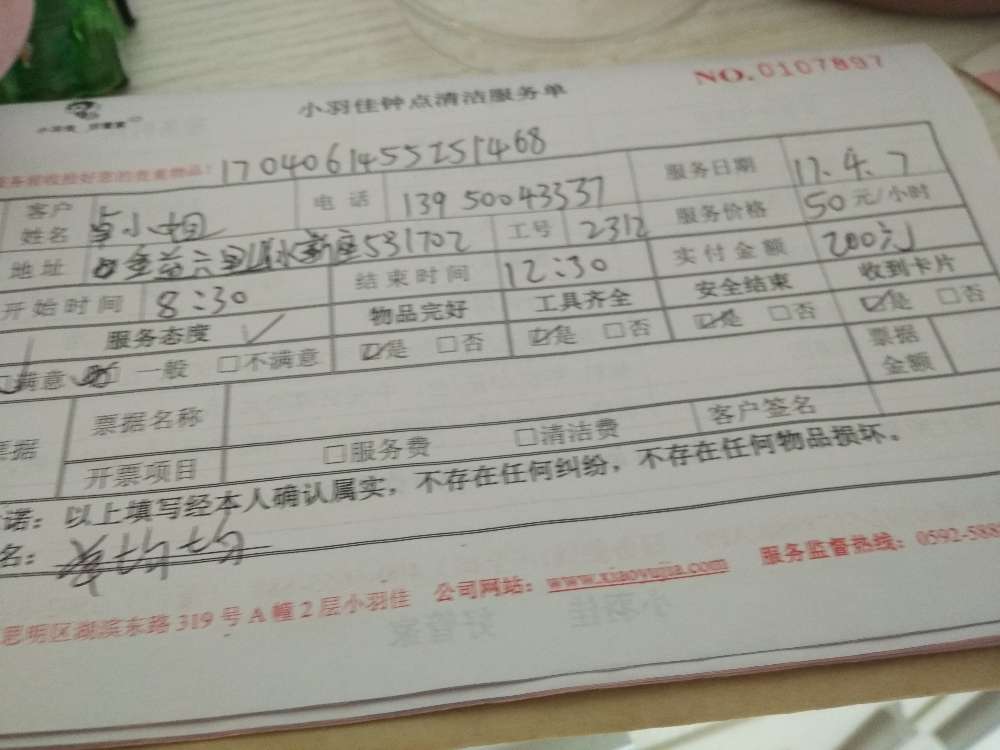 NO.0107897
小羽佳钟点清洁服务单
小羽佳 好管家
务前收捡好您的贵重物品! 17040614551251468
客户姓名 卓小姐 电话 13950043337 服务日期 17.4.7
地址 金益六里山水新座531702 工号 2312 服务价格 50元/小时
开始时间 8:30 结束时间 12:30 实付金额 200元
服务态度 物品完好 工具齐全 安全结束 收到卡片
□满意 □一般 □不满意 ☑是 □否 ☑是 □否 ☑是 □否 ☑是 □否
票据 票据名称 票据金额
开票项目 □服务费 □清洁费 客户签名
诺：以上填写经本人确认属实，不存在任何纠纷，不存在任何物品损坏。
名：
思明区湖滨东路319号A幢2层小羽佳 公司网站：www.xiaoyujia.com 服务监督热线：0592-588